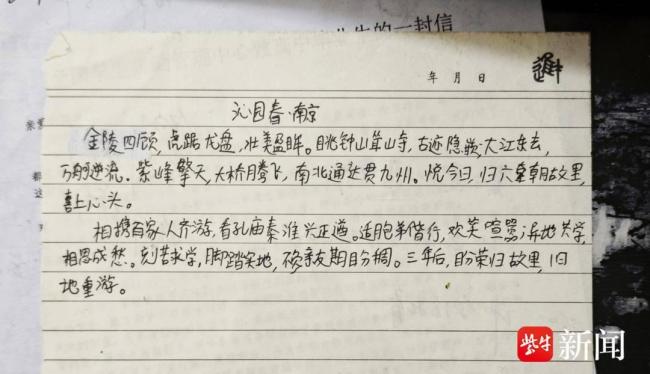 的一封信
年 月 日
沁园春·南京
金陵四顾,虎踞龙盘,壮美盈眸。眺钟山耸峙,古迹隐嵌;大江东去,
万舸逆流。紫峰擎天,大桥腾飞,南北通达贯九州。悦今日,归六朝故里,
喜上心头。
相携百家人齐游,看孔庙秦淮兴正遒。适胞弟偕行,欢笑喧嚣;异地共学,
相思成愁。刻苦求学,脚踏实地,亲友期盼稠。三年后,盼荣归故里,旧
地重游。
紫牛新闻